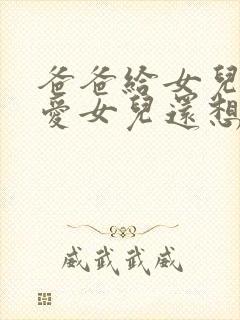 爸爸給女兒
愛女兒還想
威武武威